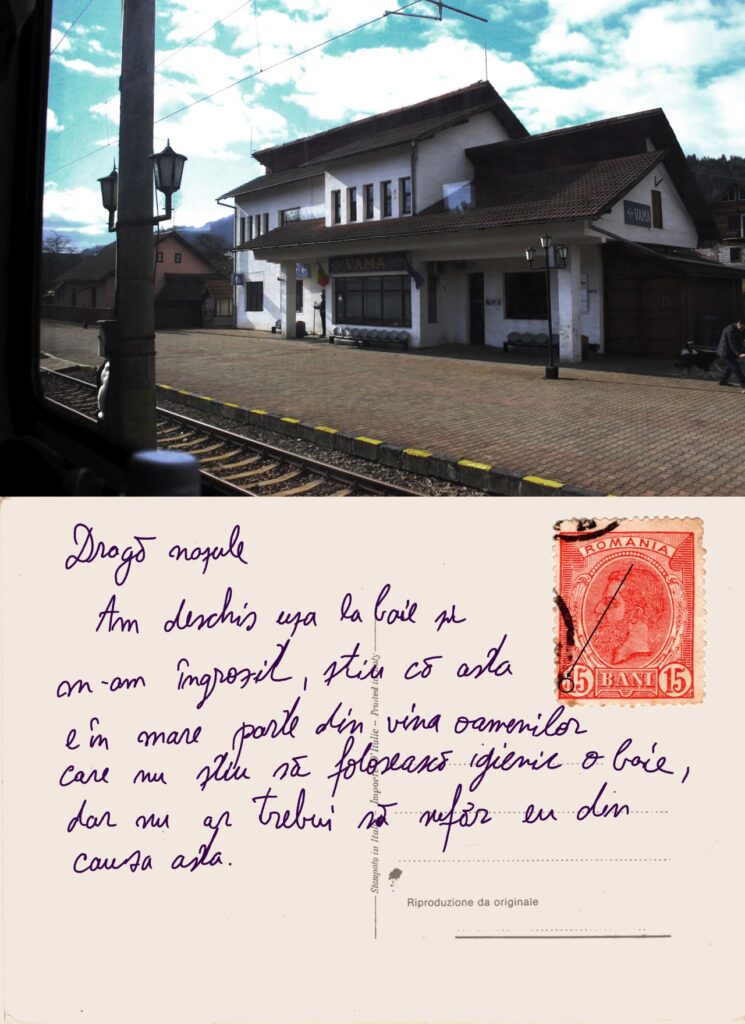 VAMA
VAMA
ROMANIA
15 BANI 15
Dragă nașule
Am deschis ușa la baie și
m-am îngrozit, știu că asta
e în mare parte din vina oamenilor
care nu știu să folosească igienic o baie,
dar nu ar trebui să sufăr eu din
cauza asta.
Stampato in d'Italie – Printed in Italy
Riproduzione da originale